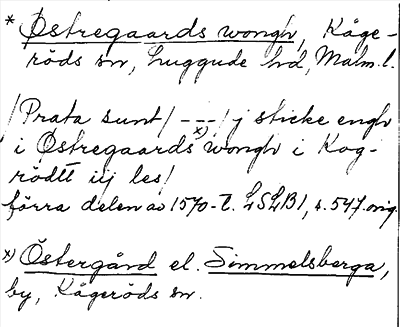 * Østregaards wongh, Kåge-
röds sn, Luggude hd, Malm.l.
/Prata sunt/ --- / j sticke engh
i Østregaards x) wongh i Kog-
rödtt iij les/
förra delen av 1570-t. LSLB1, s.547.orig.
x) Östergård el. Simmelsberga,
by, Kågeröds sn.